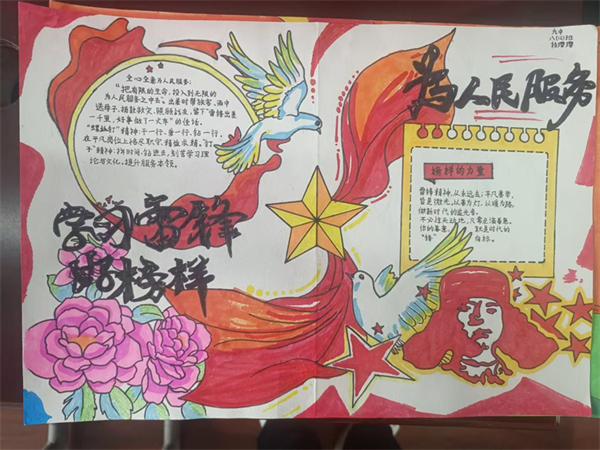 全心全意为人民服务:
"把有限的生命,投入到无限的
为人民服务之中去"。出差时帮旅客,雨中
送母子,捐款救灾,照顾战友,留下"雷锋出差
一千里,好事做了一火车"的佳话。
"螺丝钉"精神:干一行、爱一行、钻一行,
在平凡岗位上恪尽职守、精益求精。"钉
子"精神:挤时间、钻进去,刻苦学习理
论与文化,提升服务本领。
学习雷锋
好榜样
九中
八(四)班
为人民服务
榜样的力量
雷锋精神,从未远去;平凡善举,
皆是微光,以善为灯,以暖为路,
做新时代的追光者。
不必惊天动地,只需点滴善意。
你的善意,就是时代的
"锋"向标。